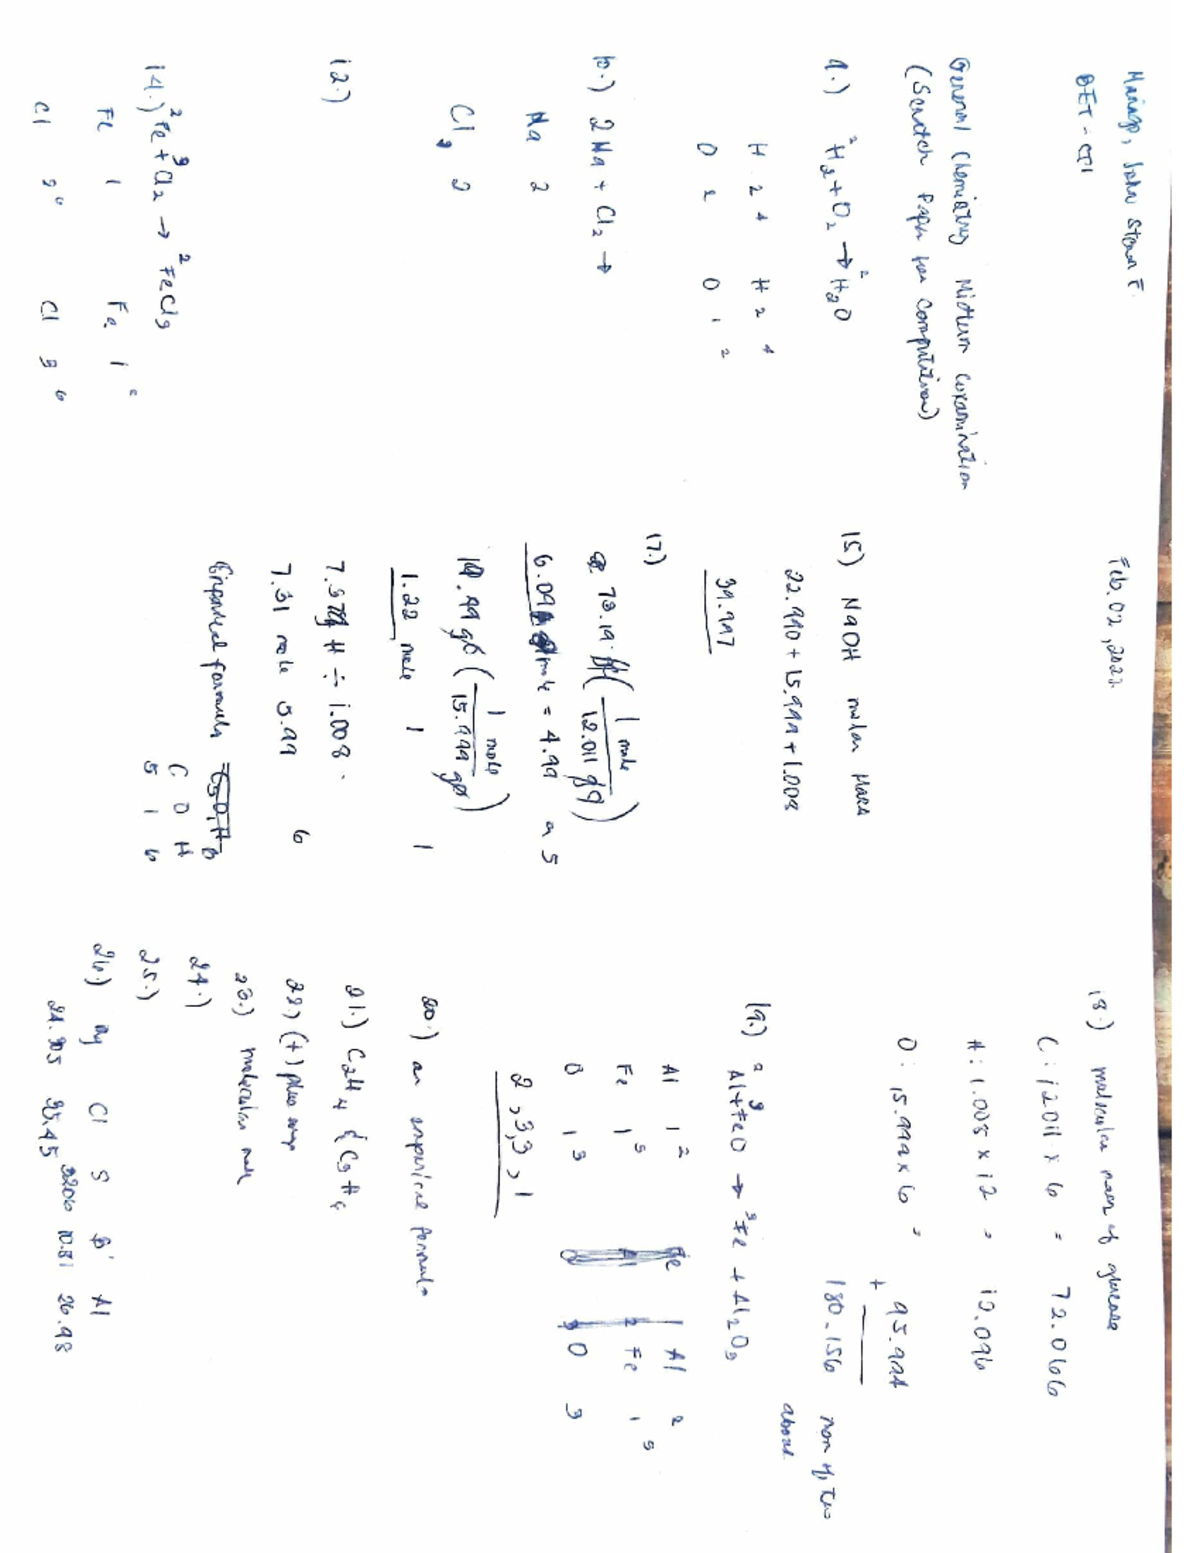 John Steven F.
Feb. 02, 2022
General Chemistry Midterm
(Scratch Paper for Computation)
9.) 2H2 + O2 → 2H2O
H 2 4 H 2 4
O 2 O 1 2
10.) 2 Na + Cl2 →
Na 2
Cl, 2
12.)
14.) 2Fe + 3Cl2 → 2FeCl3
Fe 1 Fe 1 2
Cl 2 6 Cl 3 6
15) NaOH molar Mass
22.990 + 15.999 + 1.008
39.997
17.)
73.19 ( 1 mole / 12.011 g )
6.09 mole = 4.99 5
( 1 mole / 15.999 g )
1.22 mole 1 1
H ÷ 1.008
7.31 mole 5.99 6
Empirical formula C5O1H6
C O H
5 1 6
18.) molecular mass of glucose
C: 12.011 x 6 = 72.066
H: 1.008 x 12 = 12.096
O: 15.999 x 6 = 95.994
+
180.156 non of the above
19.) 2Al + 3FeO → 3Fe + Al2O3
Al 1 2 Fe 1 Al 2
Fe 1 3 Al 2 Fe 1 3
O 1 3 O 3 O 3
2,3,3,1
20.) an empirical formula
21.) C2H4 & C3H6
22.) (+) plus
23.) molecular
24.)
25.)
26.) Mg Cl S B Al
24.305 35.45 32.06 10.81 26.98